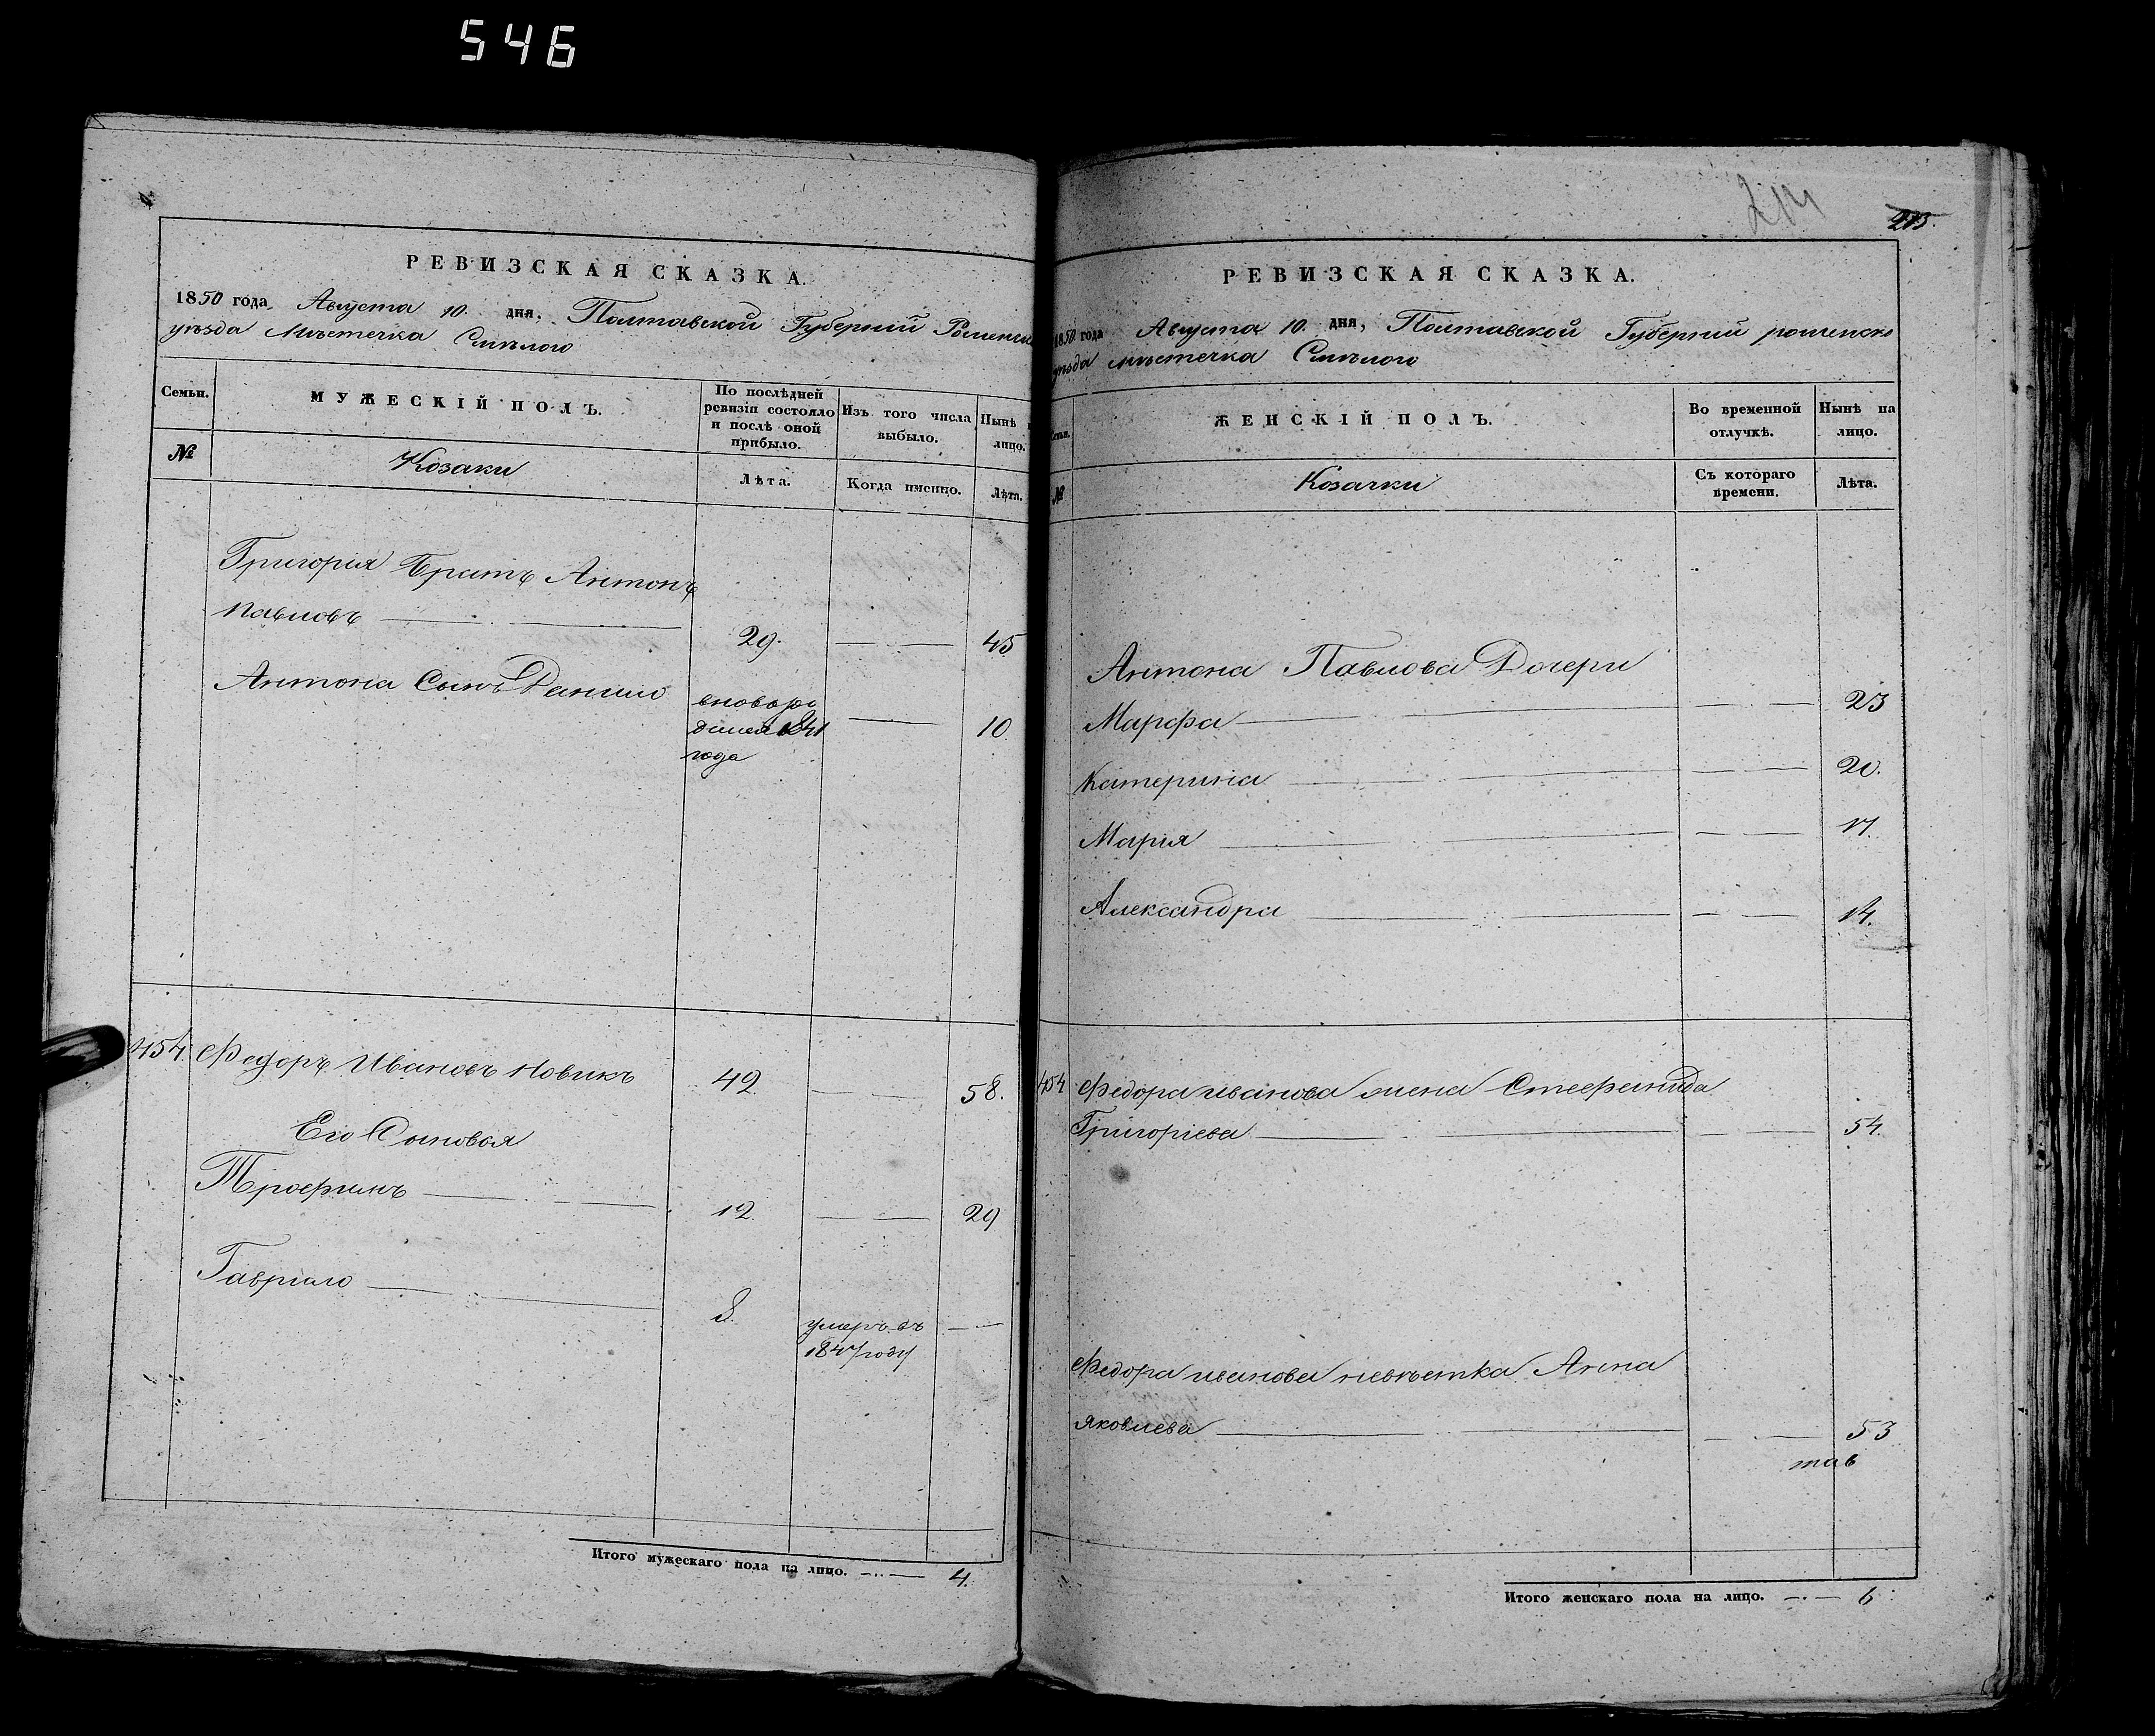 546
РЕВИЗСКАЯ СКАЗКА.
1850 года Августа 10. дня, Полтавской Губерний Роменск
уѣзда Мѣстечка Смѣлого
Семьи.
МУЖЕСКІЙ ПОЛЪ.
По послѣдней
ревизіи состояло
и послѣ оной
прибыло.
Изъ того числа
выбыло.
Нынѣ н
лицо.
№
Козаки
Лѣта.
Когда именно.
Лѣта.
Григорія Братъ Антонъ
Павловъ 29. 45
Антона Сынъ Данило
вноворо
дился 1841
года
10
454. Федоръ Ивановъ Новикъ 42. 58.
Его Сыновья
Трофимъ 12. 29
Гавріило 8.
умеръ въ
1847 году
Итого мужескаго пола на лицо. 4.
214
215.
РЕВИЗСКАЯ СКАЗКА.
1850 года Августа 10. дня, Полтавской Губерний роменско
уѣзда мѣстечка Смѣлого
Семьи.
ЖЕНСКІЙ ПОЛЪ.
Во временной
отлучкѣ.
Нынѣ на
лицо.
№
Козачки
Съ котораго
времени.
Лѣта.
Антона Павлова Дочери
Марфа 23
Катерина 20.
Марія 17.
Александра 14.
454 Федора иванова жена Стефанида
Григоріева 54.
Федора иванова невѣстка Анна
Яковлева 53
Итого женскаго пола на лицо. 6